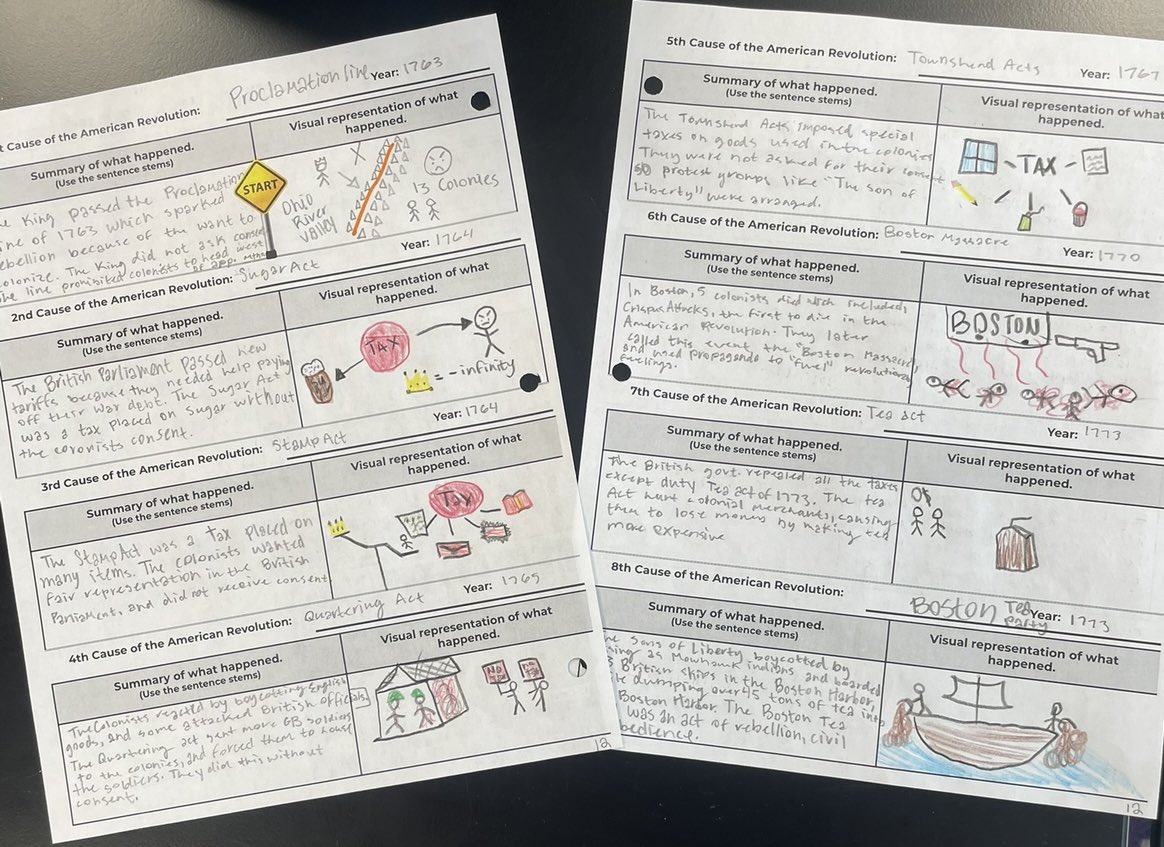 t Cause of the American Revolution: Proclamation line Year: 1763
Summary of what happened.
(Use the sentence stems)
Visual representation of what
happened.
he King passed the Proclamation
ine of 1763 which sparked
ebellion because of the want to
olonize. The King did not ask consent
he line prohibited colonists to head west
of app. mtns
START
Ohio
River
Valley
13 Colonies
2nd Cause of the American Revolution: Sugar Act Year: 1764
Summary of what happened.
(Use the sentence stems)
Visual representation of what
happened.
The British Parliament passed new
tariffs because they needed help paying
off their war debt. The Sugar Act
was a tax placed on sugar without
the colonists consent.
TAX
= -infinity
3rd Cause of the American Revolution: Stamp Act Year: 1764
Summary of what happened.
(Use the sentence stems)
Visual representation of what
happened.
The Stamp Act was a tax placed on
many items. The colonists wanted
fair representation in the British
Parliament, and did not receive consent
Tax
4th Cause of the American Revolution: Quartering Act Year: 1765
Summary of what happened.
(Use the sentence stems)
Visual representation of what
happened.
The Colonists reacted by boycotting English
goods, and some attacked British officials.
The Quartering act sent more GB soldiers
to the colonies, and forced them to house
the soldiers. They did this without
consent.
12
5th Cause of the American Revolution: Townshend Acts Year: 1767
Summary of what happened.
(Use the sentence stems)
Visual representation of what
happened.
The Townshend Acts imposed special
taxes on goods used in the colonies
They were not asked for their consent
so protest groups like "The son of
Liberty" were arranged.
TAX
6th Cause of the American Revolution: Boston Massacre Year: 1770
Summary of what happened.
(Use the sentence stems)
Visual representation of what
happened.
In Boston, 5 colonists died which included,
Crispus Attucks, the first to die in the
American Revolution. They later
called this event the "Boston Massacre"
and used propaganda to "fuel" revolutionary
feelings.
BOSTON
7th Cause of the American Revolution: Tea act Year: 1773
Summary of what happened.
(Use the sentence stems)
Visual representation of what
happened.
The British govt. repealed all the taxes
except duty Tea act of 1773. The tea
Act hurt colonial merchants, causing
them to lose money by making tea
more expensive
8th Cause of the American Revolution: Boston Tea Party Year: 1773
Summary of what happened.
(Use the sentence stems)
Visual representation of what
happened.
he sons of Liberty boycotted by
sing as Mowhawk indians and boarded
3 British ships in the Boston Harbor,
le dumping over 45 tons of tea into
Boston Harbor. The Boston Tea
was an act of rebellion, civil
bedience.
12